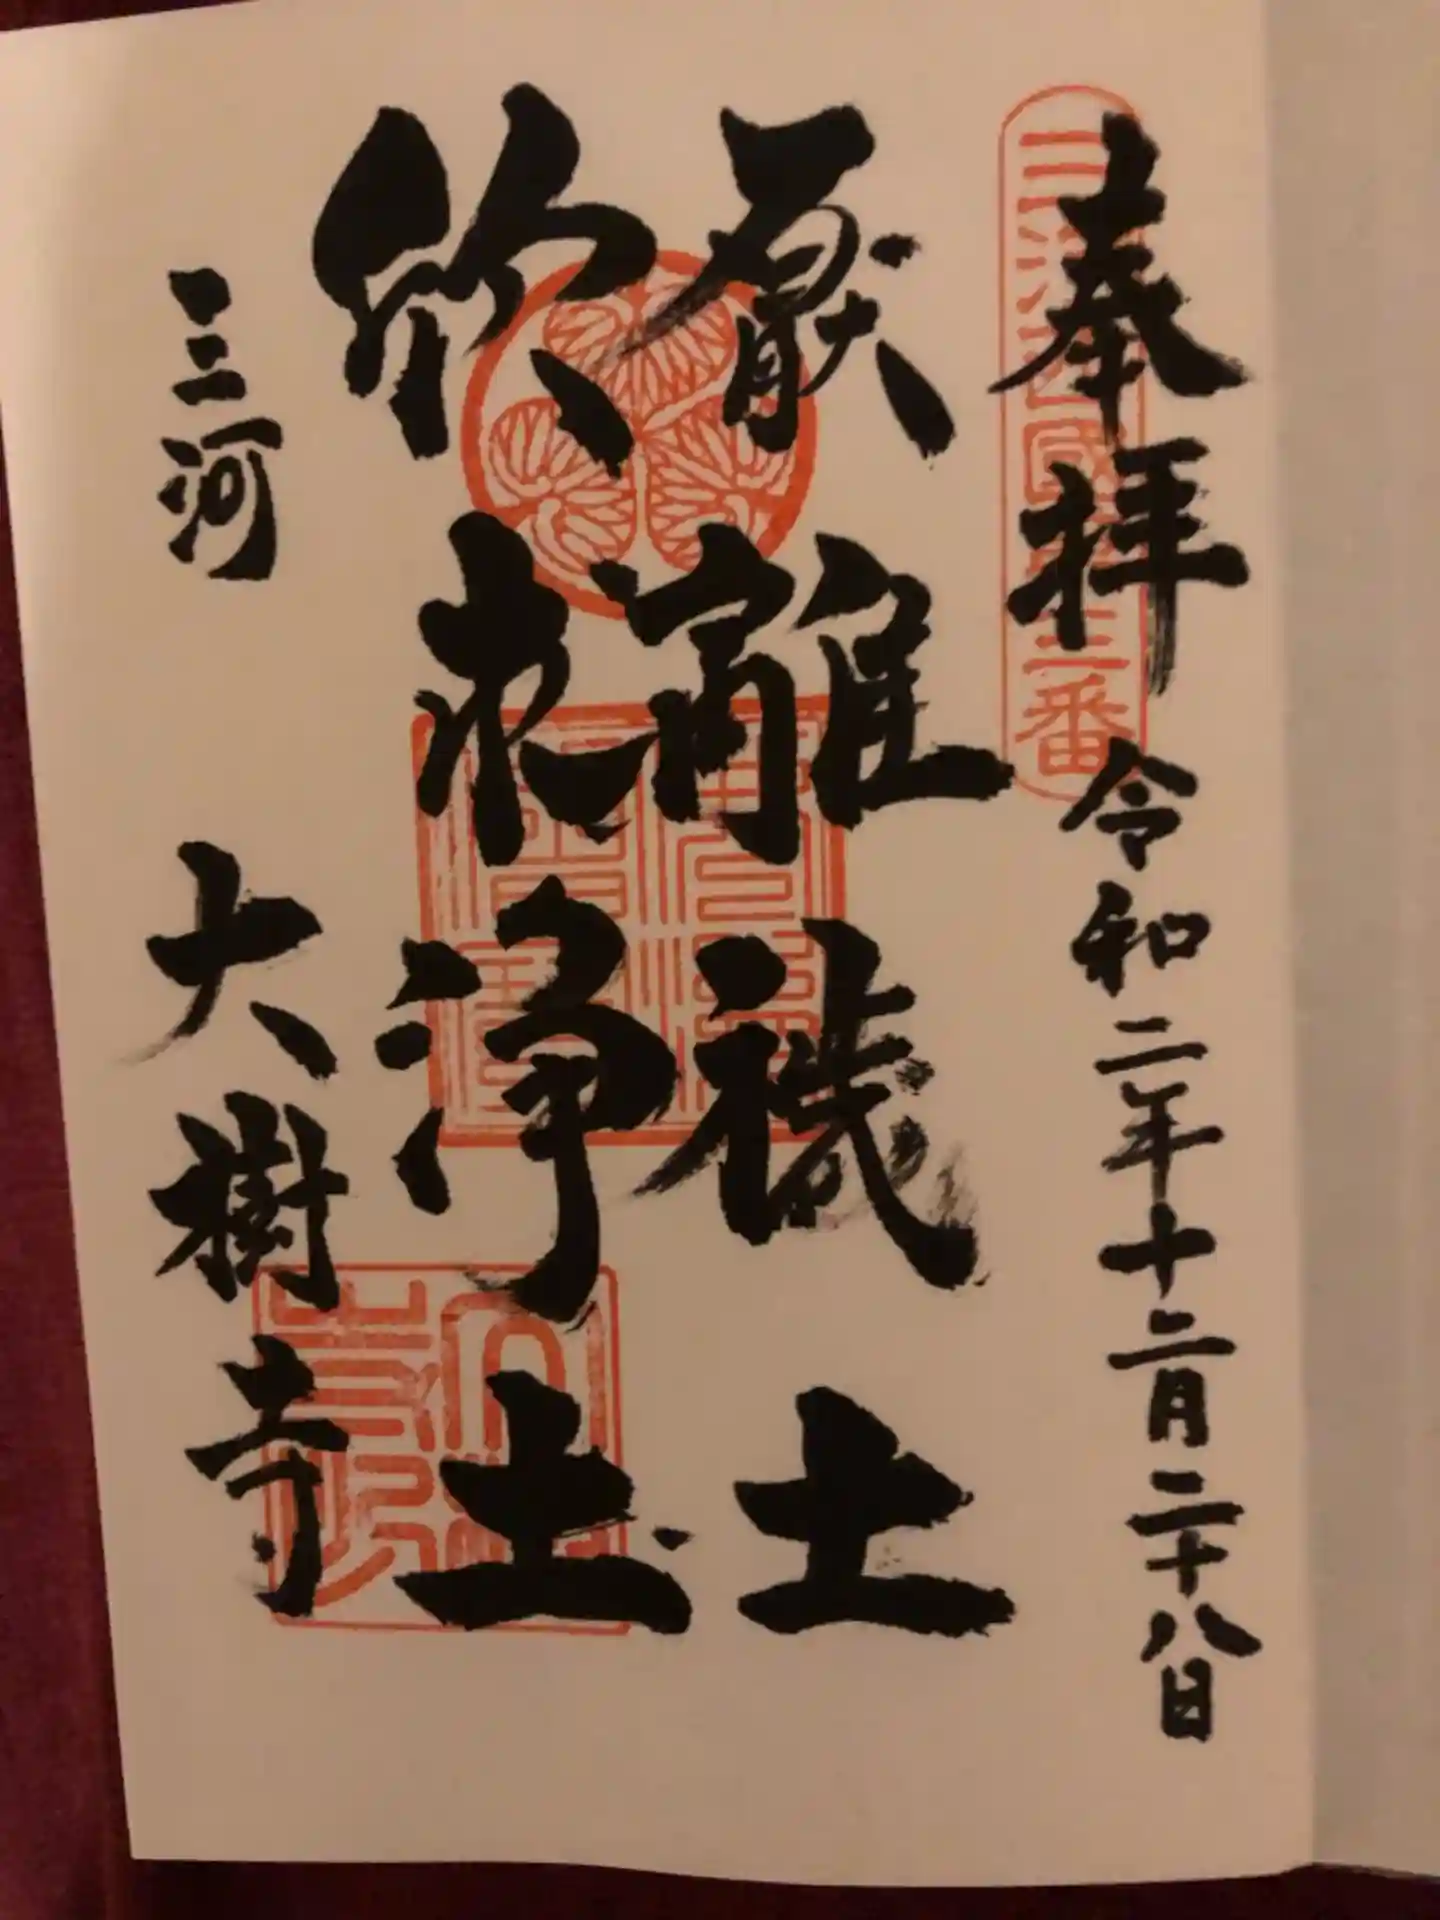 奉拝 令和二年十二月二十八日
厭離穢土
欣求浄土
三河 大樹寺